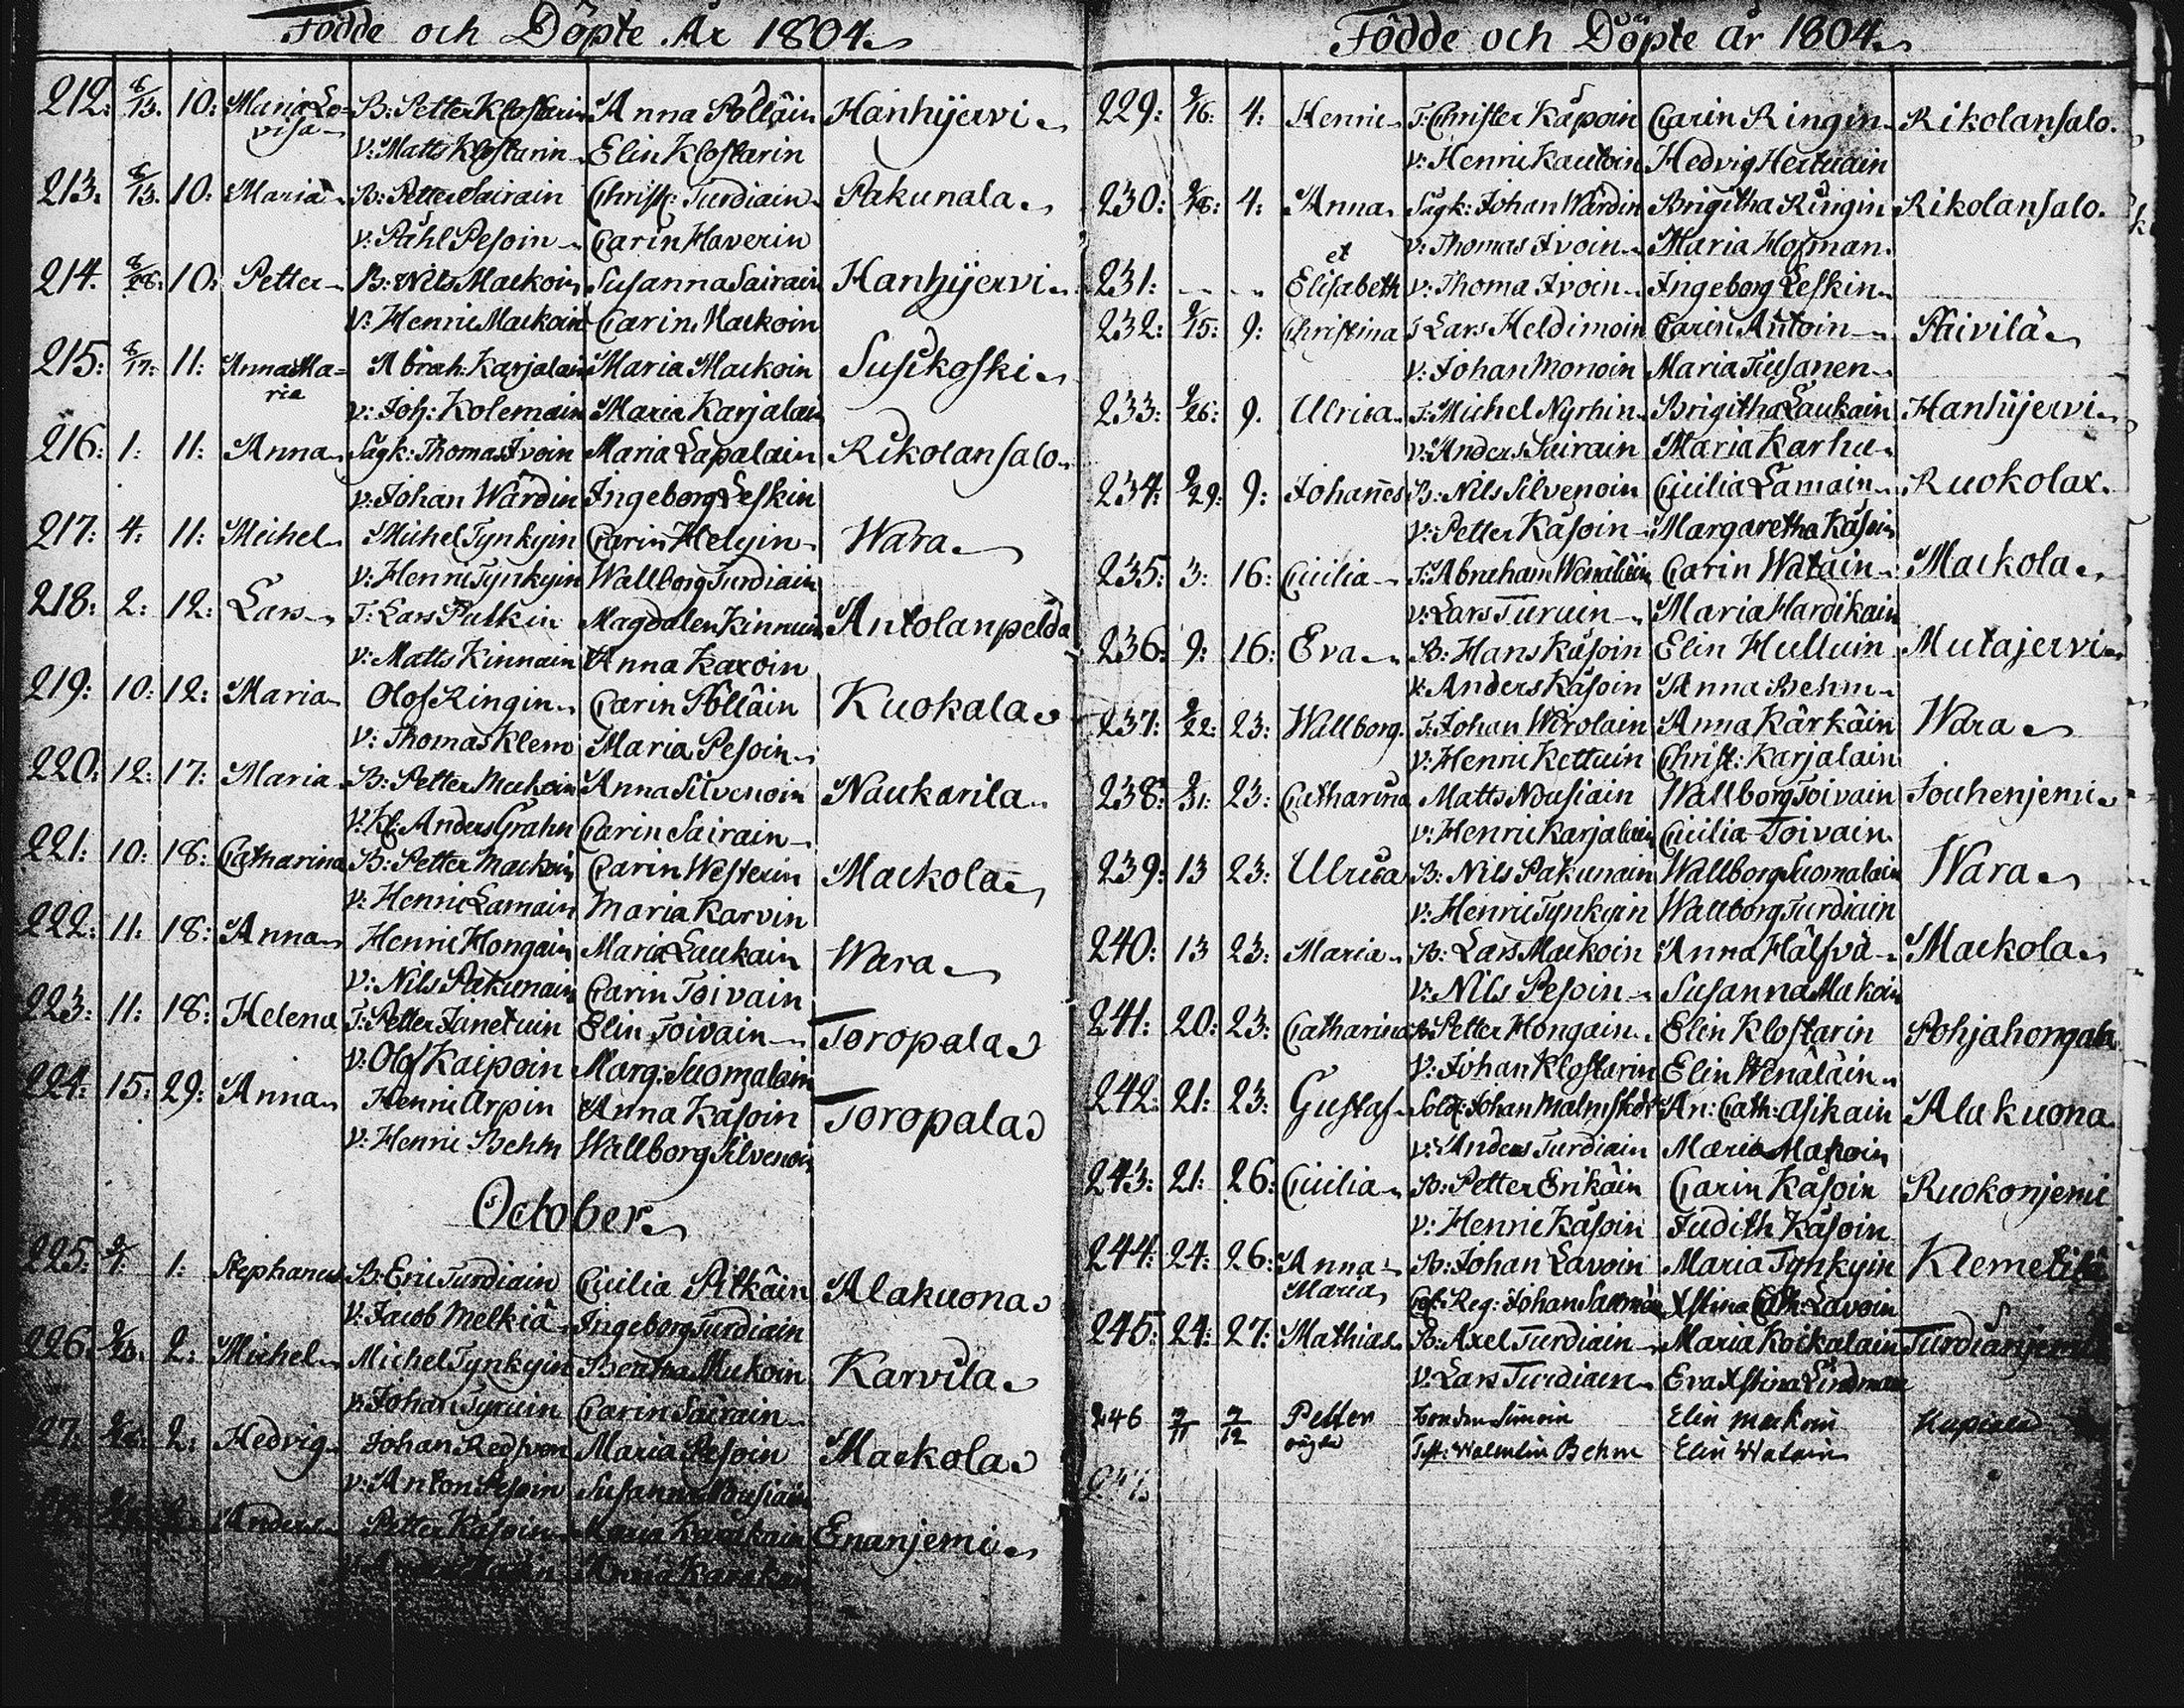 Födde och Döpte År 1804.
212: 8/13. 10: Maria Lo= B: Petter Klostarin Anna Pölläin Hanhijervi
visa V: Matts Klostarin Elin Klostarin
213: 8/13. 10: Maria B: Petter Sairain Christ: Turdiain Pakunala
V: Påhl Pesoin Carin Haverin
214. 8/28: 10: Petter B: Nils Mackoin Susanna Sairain Hanhijervi
V: Henric Mackoin Carin Mackoin
215: 8/17: 11: Anna Ma= Abrah: Karjalain Maria Mackoin Susikoski
ria V: Joh: Kolemain Maria Karjalain
216: 1: 11: Anna Sågk: Thomas Ivoin Maria Lapalain Rikolansalo
V: Johan Wårdin Ingeborg Leskin
217: 4: 11: Michel Michel Tynkyin Carin Helyin Wara
V: Henric Tynkyin Wallborg Turdiain
218: 2: 12: Lars T: Lars Pulkin Magdalen Kinnuin Antolanpeldå
V: Matts Kinnain Anna Karoin
219: 10: 12: Maria Olof Ringin Carin Pölläin Kuokala
V: Thomas Klem Maria Pesoin
220: 12: 17: Maria B: Petter Mackoin Anna Silvenoin Naukarila
V: Kf: Anders Grahn Carin Sairain
221: 10: 18: Catharina B: Petter Mackoin Carin Westerin Mackola
V: Henric Lamain Maria Karvin
222: 11: 18: Anna Henric Hongain Maria Laukain Wara
V: Nils Pakunain Carin Toivain
223: 11: 18: Helena T: Petter Janetuin Elin Toivain Toropala
V: Olof Kaipoin Marg: Suomalain
224: 15: 29: Anna Henric Arpin Anna Käsoin Toropala
V: Henric Behm Wallborg Silvenoin
October
225: 9/1: 1: Stephanus B: Eric Turdiain Cicilia Pitkäin Alakuona
V: Jacob Melkiä Ingeborg Turdiain
226: 2: Michel Michel Tynkyin Beatha Mukoin Karvila
V: Johan Tyruin Carin Sairain
27: 2: Hedvig Johan Redsven Maria Pesoin Mackola
V: Anton Pesoin Susanna Nousiain
Anders Petter Käsoin Maria Karakain Enanjemi
Anna Karakain
Födde och Döpte år 1804.
229: 9/16: 4: Henric T: Christer Käpoin Carin Ringin Rikolansalo.
V: Henric Kautoin Hedvig Hertuain
230: 9/18: 4: Anna Sågk: Johan Wårdin Brigitha Ringin Rikolansalo.
et V: Thomas Ivoin Maria Hofman
231: Elisabeth V: Thoma Ivoin Ingeborg Leskin
232: 9/15: 9: Christina I Lars Heldimoin Carin Antoin Päivilä
V: Johan Monoin Maria Tiesanen
233: 9/26: 9. Ulrica I: Michel Nyrhin Brigitha Laukain Hanhijervi
V: Anders Sairain Maria Karhu
234: 9/29: 9: Johanes B: Nils Silvenoin Cicilia Lamain Ruokolax.
V: Petter Käsoin Margaretha Käsoin
235: 3: 16: Cicilia T: Abraham Wenäläin Carin Watain Mackola
V: Lars Turuin Maria Hardikain
236: 9: 16: Eva B: Hans Käsoin Elin Hulluin Mutajervi
V: Anders Käsoin Anna Behm
237: 9/22: 23: Wallborg. T: Johan Wirolain Anna Kärkäin Wara
V: Henric Kettuin Christ: Karjalain
238: 9/31: 23: Catharina Matts Nousiain Wallborg Toivain Jouhenjemi
V: Henric Karjalain Cicilia Toivain
239: 13 23: Ulrica B: Nils Pakunain Wallborg Suomalain Wara
V: Henric Tynkyin Wallborg Turdiain
240: 13 23: Maria B: Lars Mackoin Anna Hälfvä Mackola
V: Nils Pesoin Susanna Makoin
241: 20: 23: Catharina B: Petter Hongain Elin Klostarin Pohjahongala
V: Johan Klostarin Elin Wenäläin
242: 21: 23: Gustaf Sold: Johan Malmstedt An: Cath: Asikain Alakuona
V: Anders Turdiain Maria Makoin
243: 21: 26: Cicilia B: Petter Erikäin Carin Käsoin Ruokonjemi
V: Henric Käsoin Judith Käsoin
244: 24: 26: Anna B: Johan Lavoin Maria Tynkyin Klemetilä
Maria Reg: Johan Xstina Cath: Lavoin
245: 24: 27: Mathias B: Axel Turdiain Maria Koikalain Turdianjemi
V: Lars Turdiain Eva Xstina Lindman
246 9/11 9/12 Petter Simoin Elin Mackoin
Behm Elin Watain